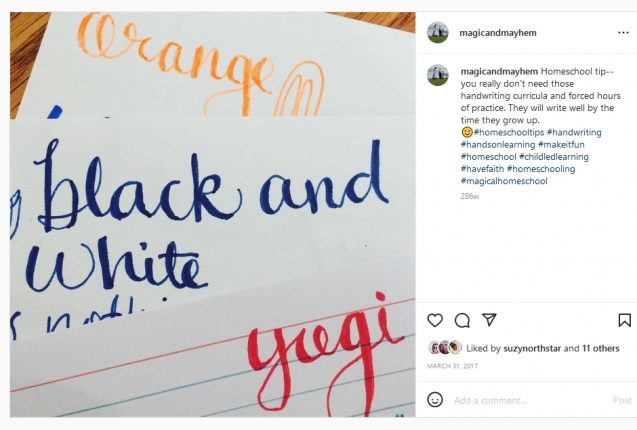 Orange
black and
White
yugi
magicandmayhem
magicandmayhem Homeschool tip--
you really don't need those
handwriting curricula and forced hours
of practice. They will write well by the
time they grow up.
🙂#homeschooltips #handwriting
#handsonlearning #makeitfun
#homeschool #childledlearning
#havefaith #homeschooling
#magicalhomeschool
286w
Liked by suzynorthstar and 11 others
MARCH 31, 2017
Add a comment... Post